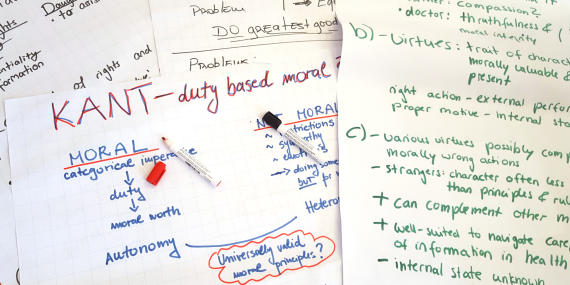 Du
to assis
ghts
entiality
formation
of rights and
Problem
→ Eq
DO greatest good
Problem:
KANT - duty based moral
MORAL
categorical
↓
duty
↓
moral worth
Autonomy
MORAL
~
~
~
→ doing some
BUT for
Hetero
Universally valid
moral principles?
compassion?
• doctor: thruthfulness & (
moral integrity
b) - virtues: trait of charac
morally valuable &
present
right action - external perfor
Proper motive - internal st
c) - various virtues possibly com
morally wrong actions
- strangers: character often less
than principles & rul
+ can complement other m
+ well-suited to navigate care,
of information in health
- internal state unknown